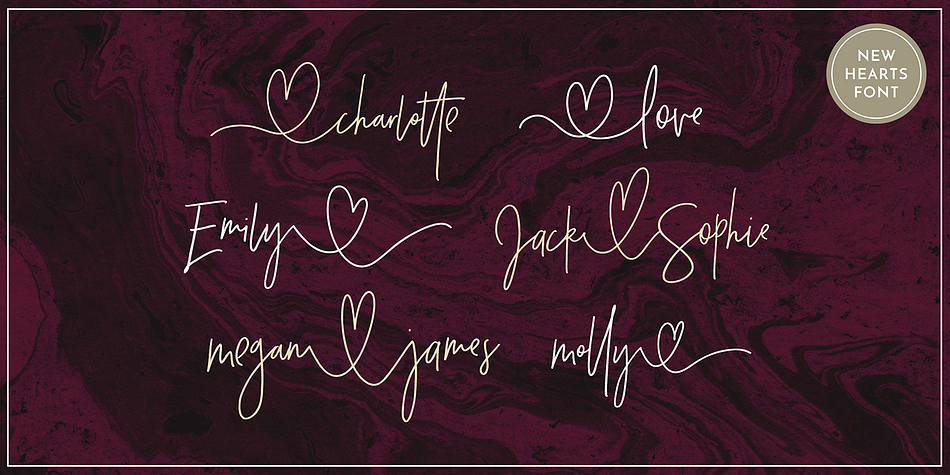 charlotte love
Emily Jack Sophie
megan james molly
NEW
HEARTS
FONT